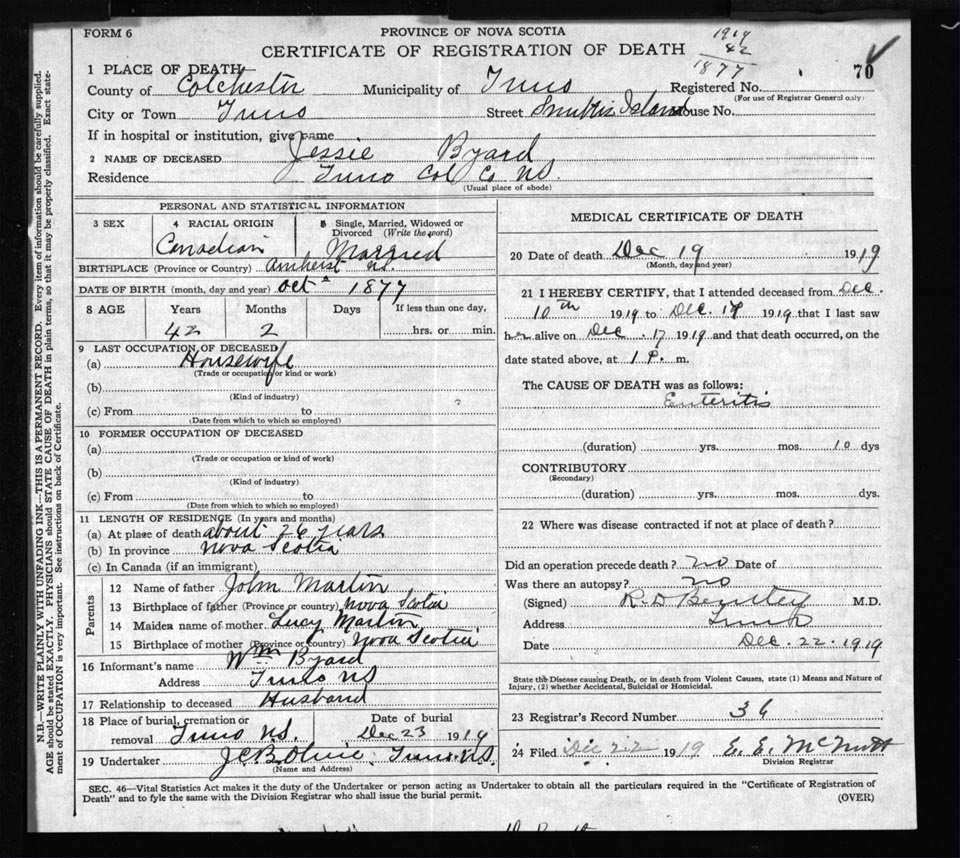 FORM 6
PROVINCE OF NOVA SCOTIA
CERTIFICATE OF REGISTRATION OF DEATH
1919
42
1877
70
1 PLACE OF DEATH
County of Colchester Municipality of Truro Registered No.
(For use of Registrar General only)
City or Town Truro Street Island House No.
If in hospital or institution, give name
2 NAME OF DECEASED Jessie Byard
Residence Truro Col Co NS.
(Usual place of abode)
PERSONAL AND STATISTICAL INFORMATION
3 SEX 4 RACIAL ORIGIN Canadian 5 Single, Married, Widowed or Divorced (Write the word) Married
BIRTHPLACE (Province or Country) Amherst NS.
DATE OF BIRTH (month, day and year) Oct 1877
8 AGE Years Months Days If less than one day,
42 2 hrs. or min.
9 LAST OCCUPATION OF DECEASED
(a) Housewife
(Trade or occupation or kind or work)
(b)
(Kind of industry)
(c) From to
(Date from which to which so employed)
10 FORMER OCCUPATION OF DECEASED
(a)
(Trade or occupation or kind of work)
(b)
(Kind of industry)
(c) From to
(Date from which to which so employed)
11 LENGTH OF RESIDENCE (In years and months)
(a) At place of death about 26 years
(b) In province Nova Scotia
(c) In Canada (if an immigrant)
Parents
12 Name of father John Martin
13 Birthplace of father (Province or country) Nova Scotia
14 Maiden name of mother Lucy Martin
15 Birthplace of mother (Province or country) Nova Scotia
16 Informant's name Wm Byard
Address Truro NS
17 Relationship to deceased Husband
18 Place of burial, cremation or removal Truro N.S. Date of burial Dec 23 1919
19 Undertaker Truro. N.S.
(Name and Address)
MEDICAL CERTIFICATE OF DEATH
20 Date of death Dec 19 1919
(Month, day and year)
21 I HEREBY CERTIFY, that I attended deceased from Dec.
10th 1919 to Dec. 1919 that I last saw
her alive on Dec 17 1919 and that death occurred, on the
date stated above, at 1 P. m.
The CAUSE OF DEATH was as follows:
Enteritis
(duration) yrs. mos. 10 dys
CONTRIBUTORY
(Secondary)
(duration) yrs. mos. dys.
22 Where was disease contracted if not at place of death?
Did an operation precede death? no Date of
Was there an autopsy? no
(Signed) R. D Bentley M.D.
Address Truro
Date Dec. 22 1919
State the Disease causing Death, or in death from Violent Causes, state (1) Means and Nature of
Injury, (2) whether Accidental, Suicidal or Homicidal.
23 Registrar's Record Number 36
24 Filed Dec 22 1919 E. E. McNutt
Division Registrar
SEC. 46—Vital Statistics Act makes it the duty of the Undertaker or person acting as Undertaker to obtain all the particulars required in the "Certificate of Registration of
Death" and to fyle the same with the Division Registrar who shall issue the burial permit.
(OVER)
N.B.—WRITE PLAINLY WITH UNFADING INK—THIS IS A PERMANENT RECORD. Every item of information should be carefully supplied.
AGE should be stated EXACTLY. PHYSICIANS should STATE CAUSE OF DEATH in plain terms, so that it may be properly classified. Exact state-
ment of OCCUPATION is very important. See instructions on back of Certificate.